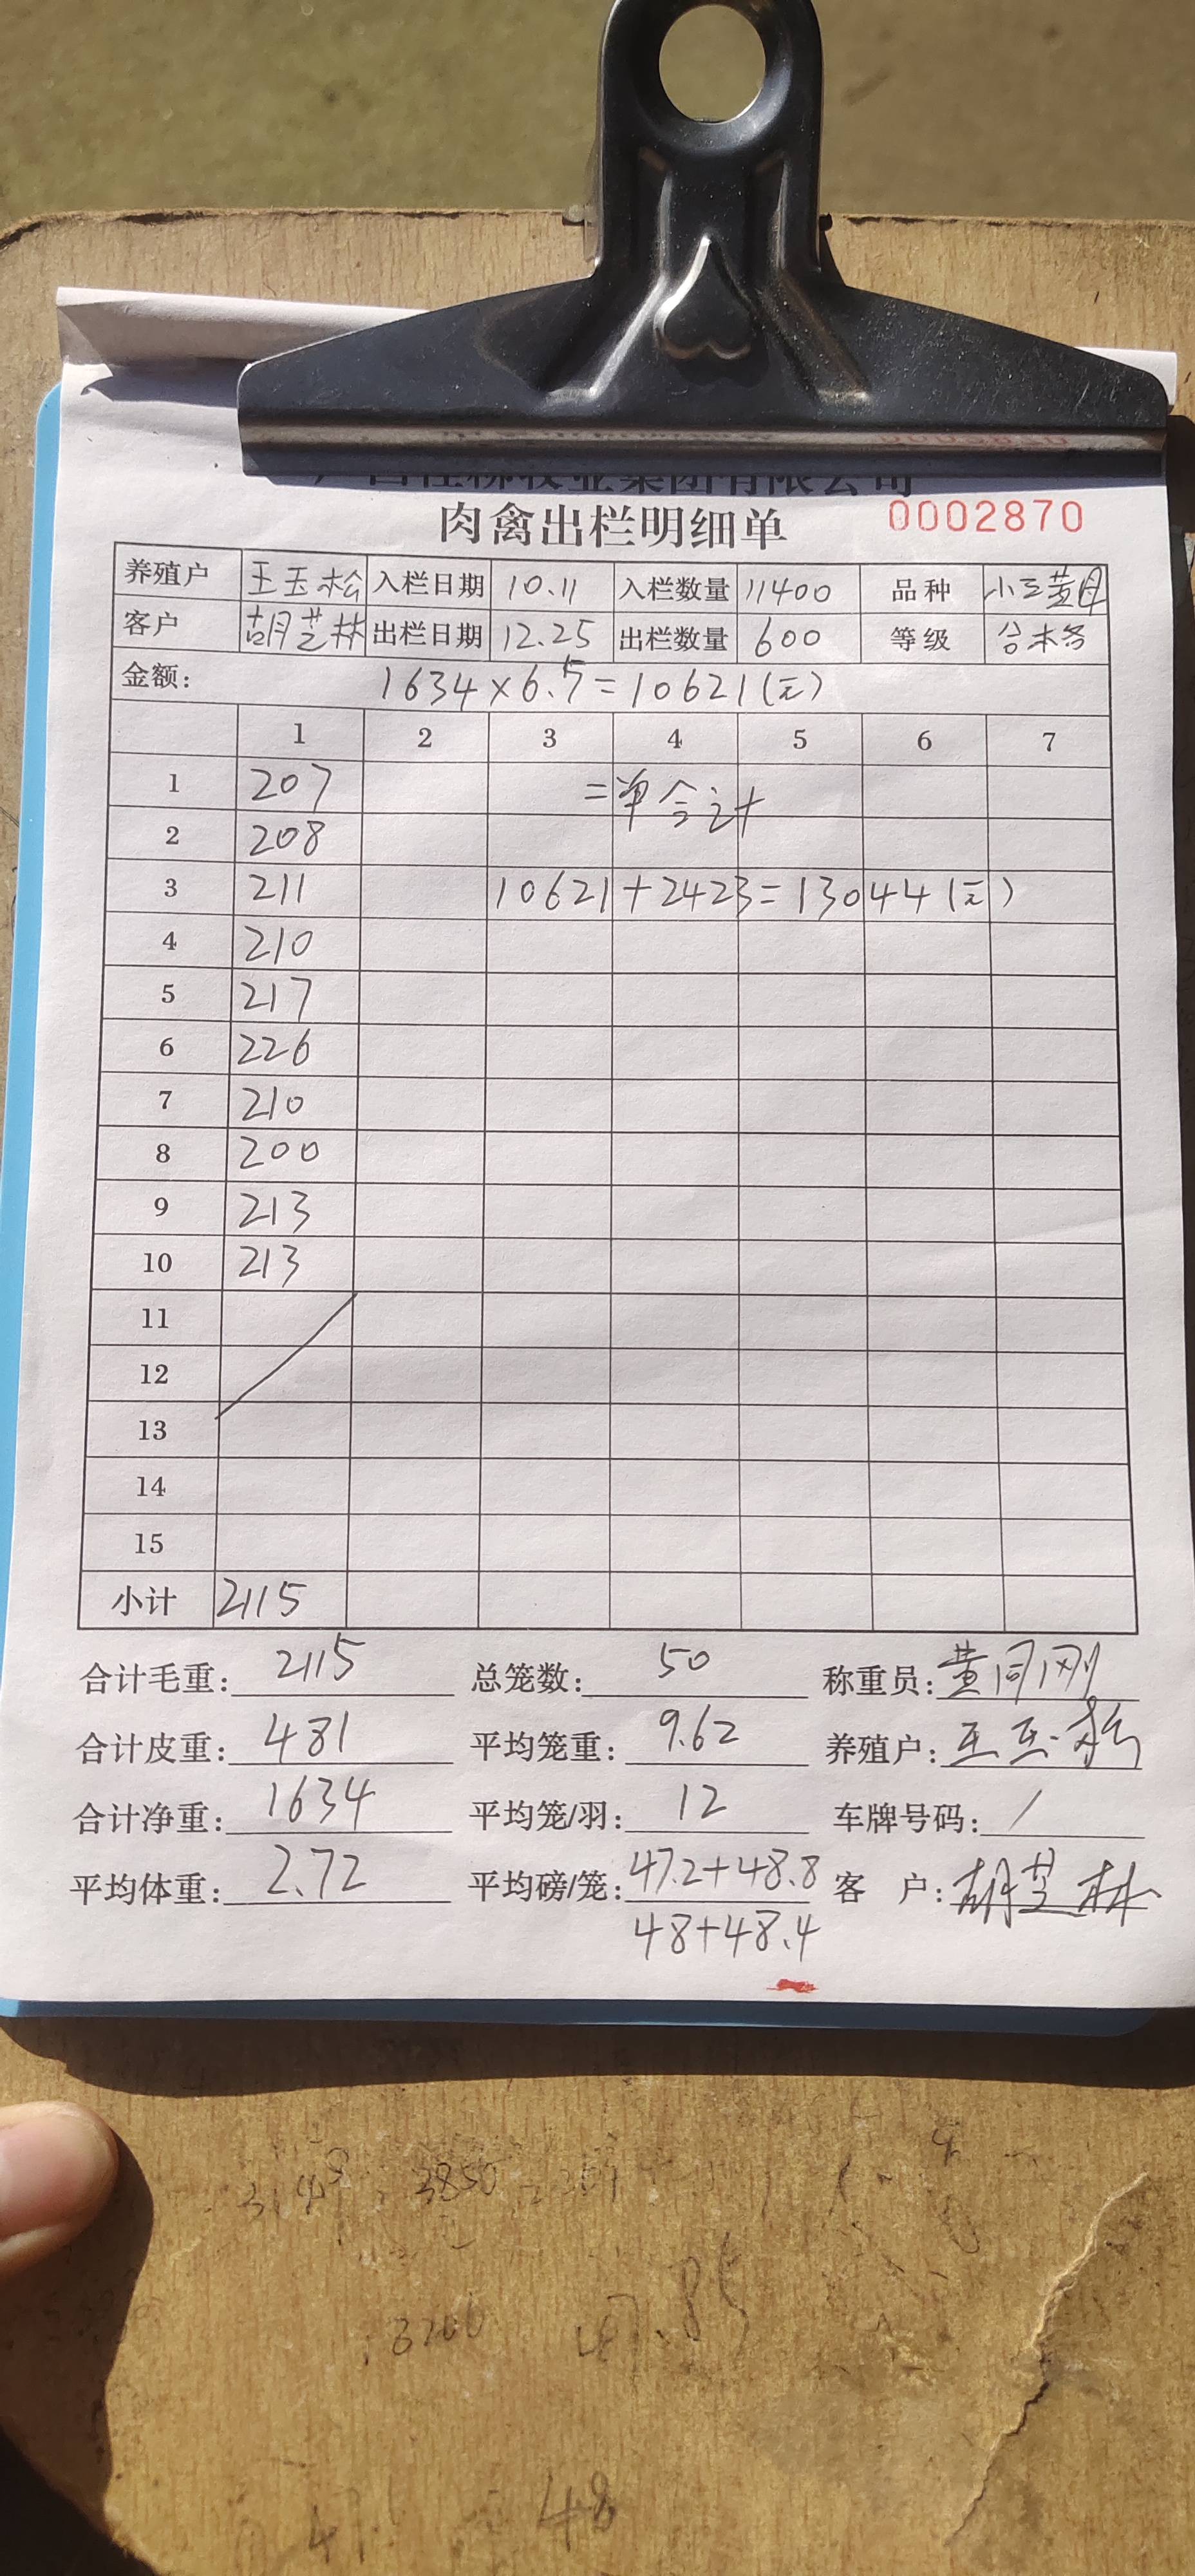 肉禽出栏明细单 0002870
养殖户 王玉松 入栏日期 10.11 入栏数量 11400 品种 小三黄母
客户 胡芝林 出栏日期 12.25 出栏数量 600 等级 合格
金额: 1634×6.5=10621(元)
1 2 3 4 5 6 7
1 207 二单合计
2 208
3 211 10621+2423=13044(元)
4 210
5 217
6 226
7 210
8 200
9 213
10 213
11
12
13
14
15
小计 2115
合计毛重: 2115 总笼数: 50 称重员: 黄同刚
合计皮重: 481 平均笼重: 9.62 养殖户: 王玉松
合计净重: 1634 平均笼/羽: 12 车牌号码: /
平均体重: 2.72 平均磅/笼: 47.2+48.8 客户: 胡芝林
48+48.4
3850
3200
48